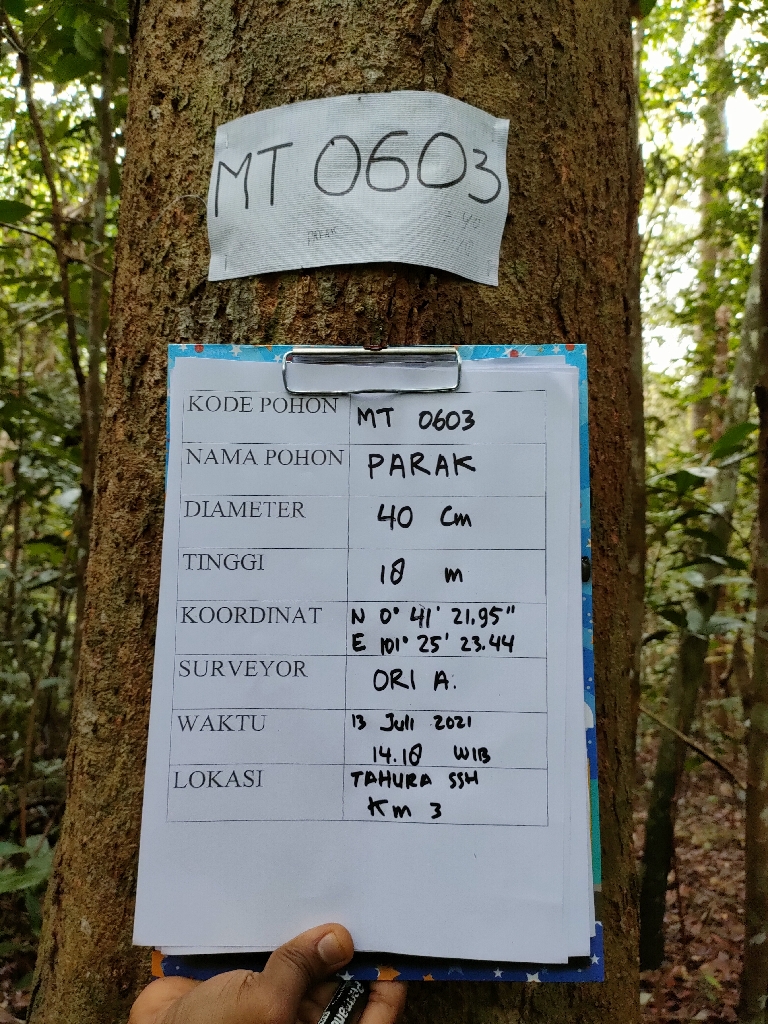 MT 0603
PARAK
KODE POHON MT 0603
NAMA POHON PARAK
DIAMETER 40 Cm
TINGGI 18 m
KOORDINAT N 0° 41' 21.95"
E 101° 25' 23.44
SURVEYOR ORI A.
WAKTU 13 Juli 2021
14.18 WIB
LOKASI TAHURA SSH
Km 3